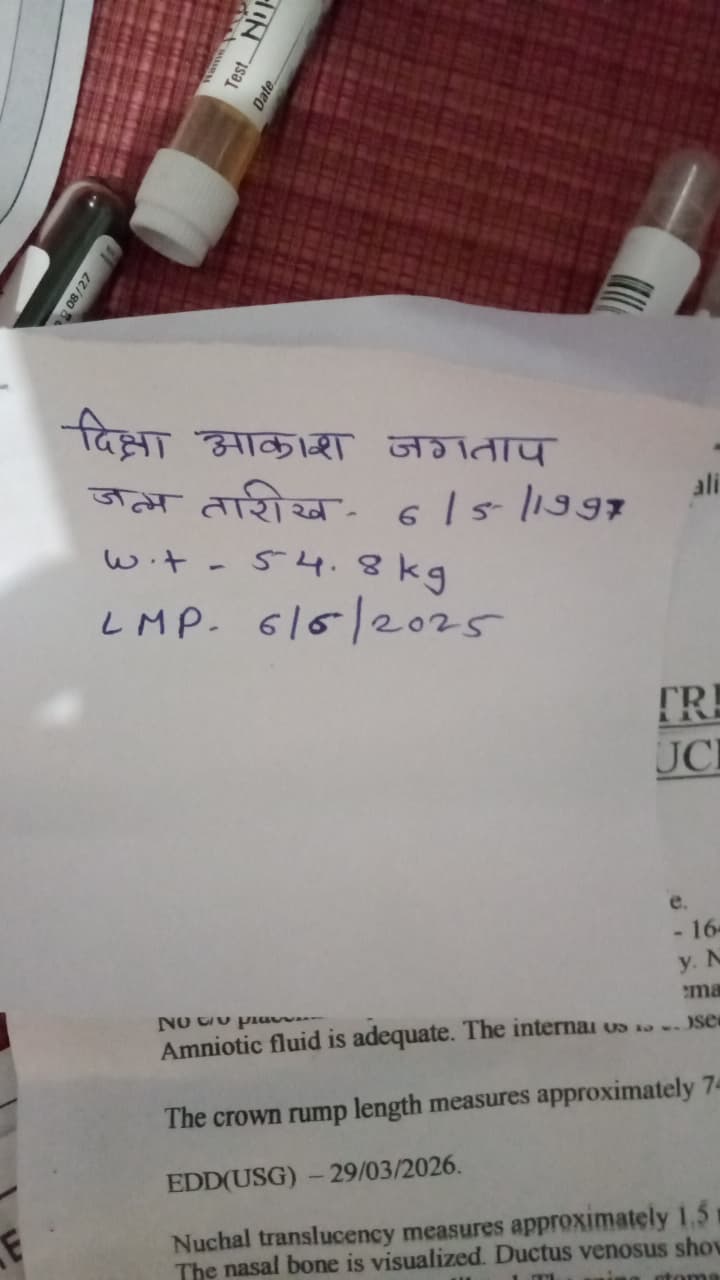 Test
Date
08/27
दिक्षा आकाश जगताप
जन्म तारीख - 6/5/1997
W.t - 54.8 kg
LMP. 6/6/2025
Amniotic fluid is adequate. The internal os is
The crown rump length measures approximately
EDD(USG) – 29/03/2026.
Nuchal translucency measures approximately 1.5
The nasal bone is visualized. Ductus venosus